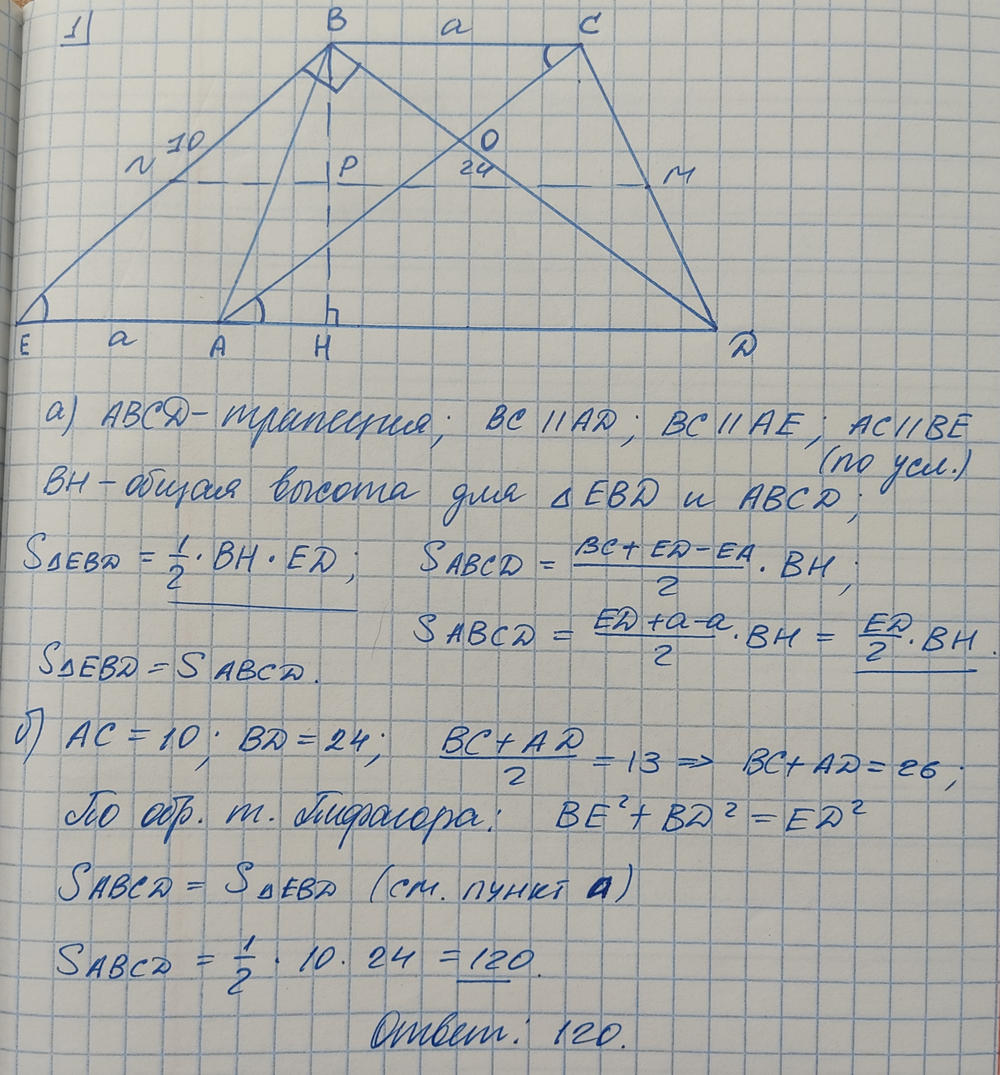 1
B a C
N 10 O
P 24 M
E a A H D
а) ABCD – трапеция; BC || AD; BC || AE; AC || BE
(по усл.)
BH – общая высота для △EBD и ABCD;
S△EBD = 1/2 · BH · ED; SABCD = (BC + ED – EA)/2 · BH;
SABCD = (ED + a – a)/2 · BH = ED/2 · BH.
S△EBD = SABCD.
б) AC = 10; BD = 24; (BC + AD)/2 = 13 => BC + AD = 26;
По обр. т. Пифагора: BE² + BD² = ED²
SABCD = S△EBD (см. пункт а)
SABCD = 1/2 · 10 · 24 = 120.
Ответ: 120.